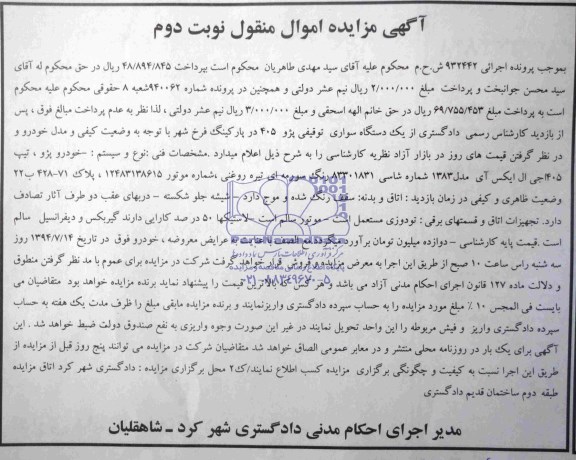 آگهی مزایده اموال منقول نوبت دوم
بموجب پرونده اجرائی ۹۳۲۴۴۲ ش.ح.م محکوم علیه آقای سید مهدی طاهریان محکوم است بپرداخت ۴۸/۸۹۴/۸۴۵ ریال در حق محکوم له آقای
سید محسن جوانبخت و پرداخت مبلغ ۲/۰۰۰/۰۰۰ ریال نیم عشر دولتی و همچنین در پرونده شماره ۹۴۰۰۶۲شعبه ۸ حقوقی محکوم علیه محکوم
است به پرداخت مبلغ ۶۹/۷۵۵/۴۵۳ ریال در حق خانم الهه اسحقی و مبلغ ۳/۰۰۰/۰۰۰ ریال نیم عشر دولتی ، لذا نظر به عدم پرداخت مبالغ فوق ، پس
از بازدید کارشناس رسمی دادگستری از یک دستگاه سواری توقیفی پژو ۴۰۵ در پارکینگ فرخ شهر با توجه به وضعیت کیفی و مدل خودرو و
در نظر گرفتن قیمت های روز در بازار آزاد نظریه کارشناسی را به شرح ذیل اعلام میدارد .مشخصات فنی :نوع و سیستم : -خودرو پژو ، تیپ
۴۰۵جی ال ایکس آی مدل۱۳۸۳ شماره شاسی ۸۳۳۰۱۸۳۱ رنگ سورمه ای تیره روغنی ،شماره موتور ۱۲۴۸۳۱۳۸۶۱۵ ، پلاک ۷۱-۴۲۸ ب۲۲
وضعیت ظاهری و کیفی در زمان بازدید : اتاق و بدنه: سقف رنگ شده و موج دارد - شیشه جلو شکسته - دربهای عقب دو طرف آثار تصادف
دارد. تجهیزات اتاق و قسمتهای برقی : تودوزی مستعمل است - موتور سالم است -لاستیکها ۵۰ در صد کارایی دارند گیربکس و دیفرانسیل سالم
است .قیمت پایه کارشناسی - دوازده میلیون تومان برآورد میگردد عرایض معروضه ، خودرو فوق در تاریخ ۱۳۹۴/۷/۱۴ روز
سه شنبه راس ساعت ۱۰ صبح از طریق این اجرا به معرض مزایده و فروش قرار خواهد گرفت شرکت در مزایده برای عموم با مد نظر گرفتن منطوق
و دلالت ماده ۱۲۷ قانون اجرای احکام مدنی آزاد می باشد و هر کس که بالاترین قیمت را پیشنهاد نماید برنده مزایده خواهد بود متقاضیان می
بایست فی المجس ۱۰٪ مبلغ مورد مزایده را به حساب سپرده دادگستری واریزنمایند و برنده مزایده مابقی مبلغ را ظرف مدت یک هفته به حساب
سپرده دادگستری واریز و فیش مربوطه را این واحد تحویل نمایند در غیر این صورت وجوه واریزی به نفع صندوق دولت ضبط خواهد شد . این
آگهی برای یک بار در روزنامه محلی منتشر و در معابر عمومی الصاق خواهد شد متقاضیان شرکت در مزایده می توانند پنج روز قبل از مزایده از
طریق این اجرا نسبت به کیفیت و چگونگی برگزاری مزایده کسب اطلاع نمایند/ک۲ محل برگزاری مزایده : دادگستری شهر کرد اتاق مزایده
طبقه دوم ساختمان قدیم دادگستری
مدیر اجرای احکام مدنی دادگستری شهر کرد - شاهقلیان